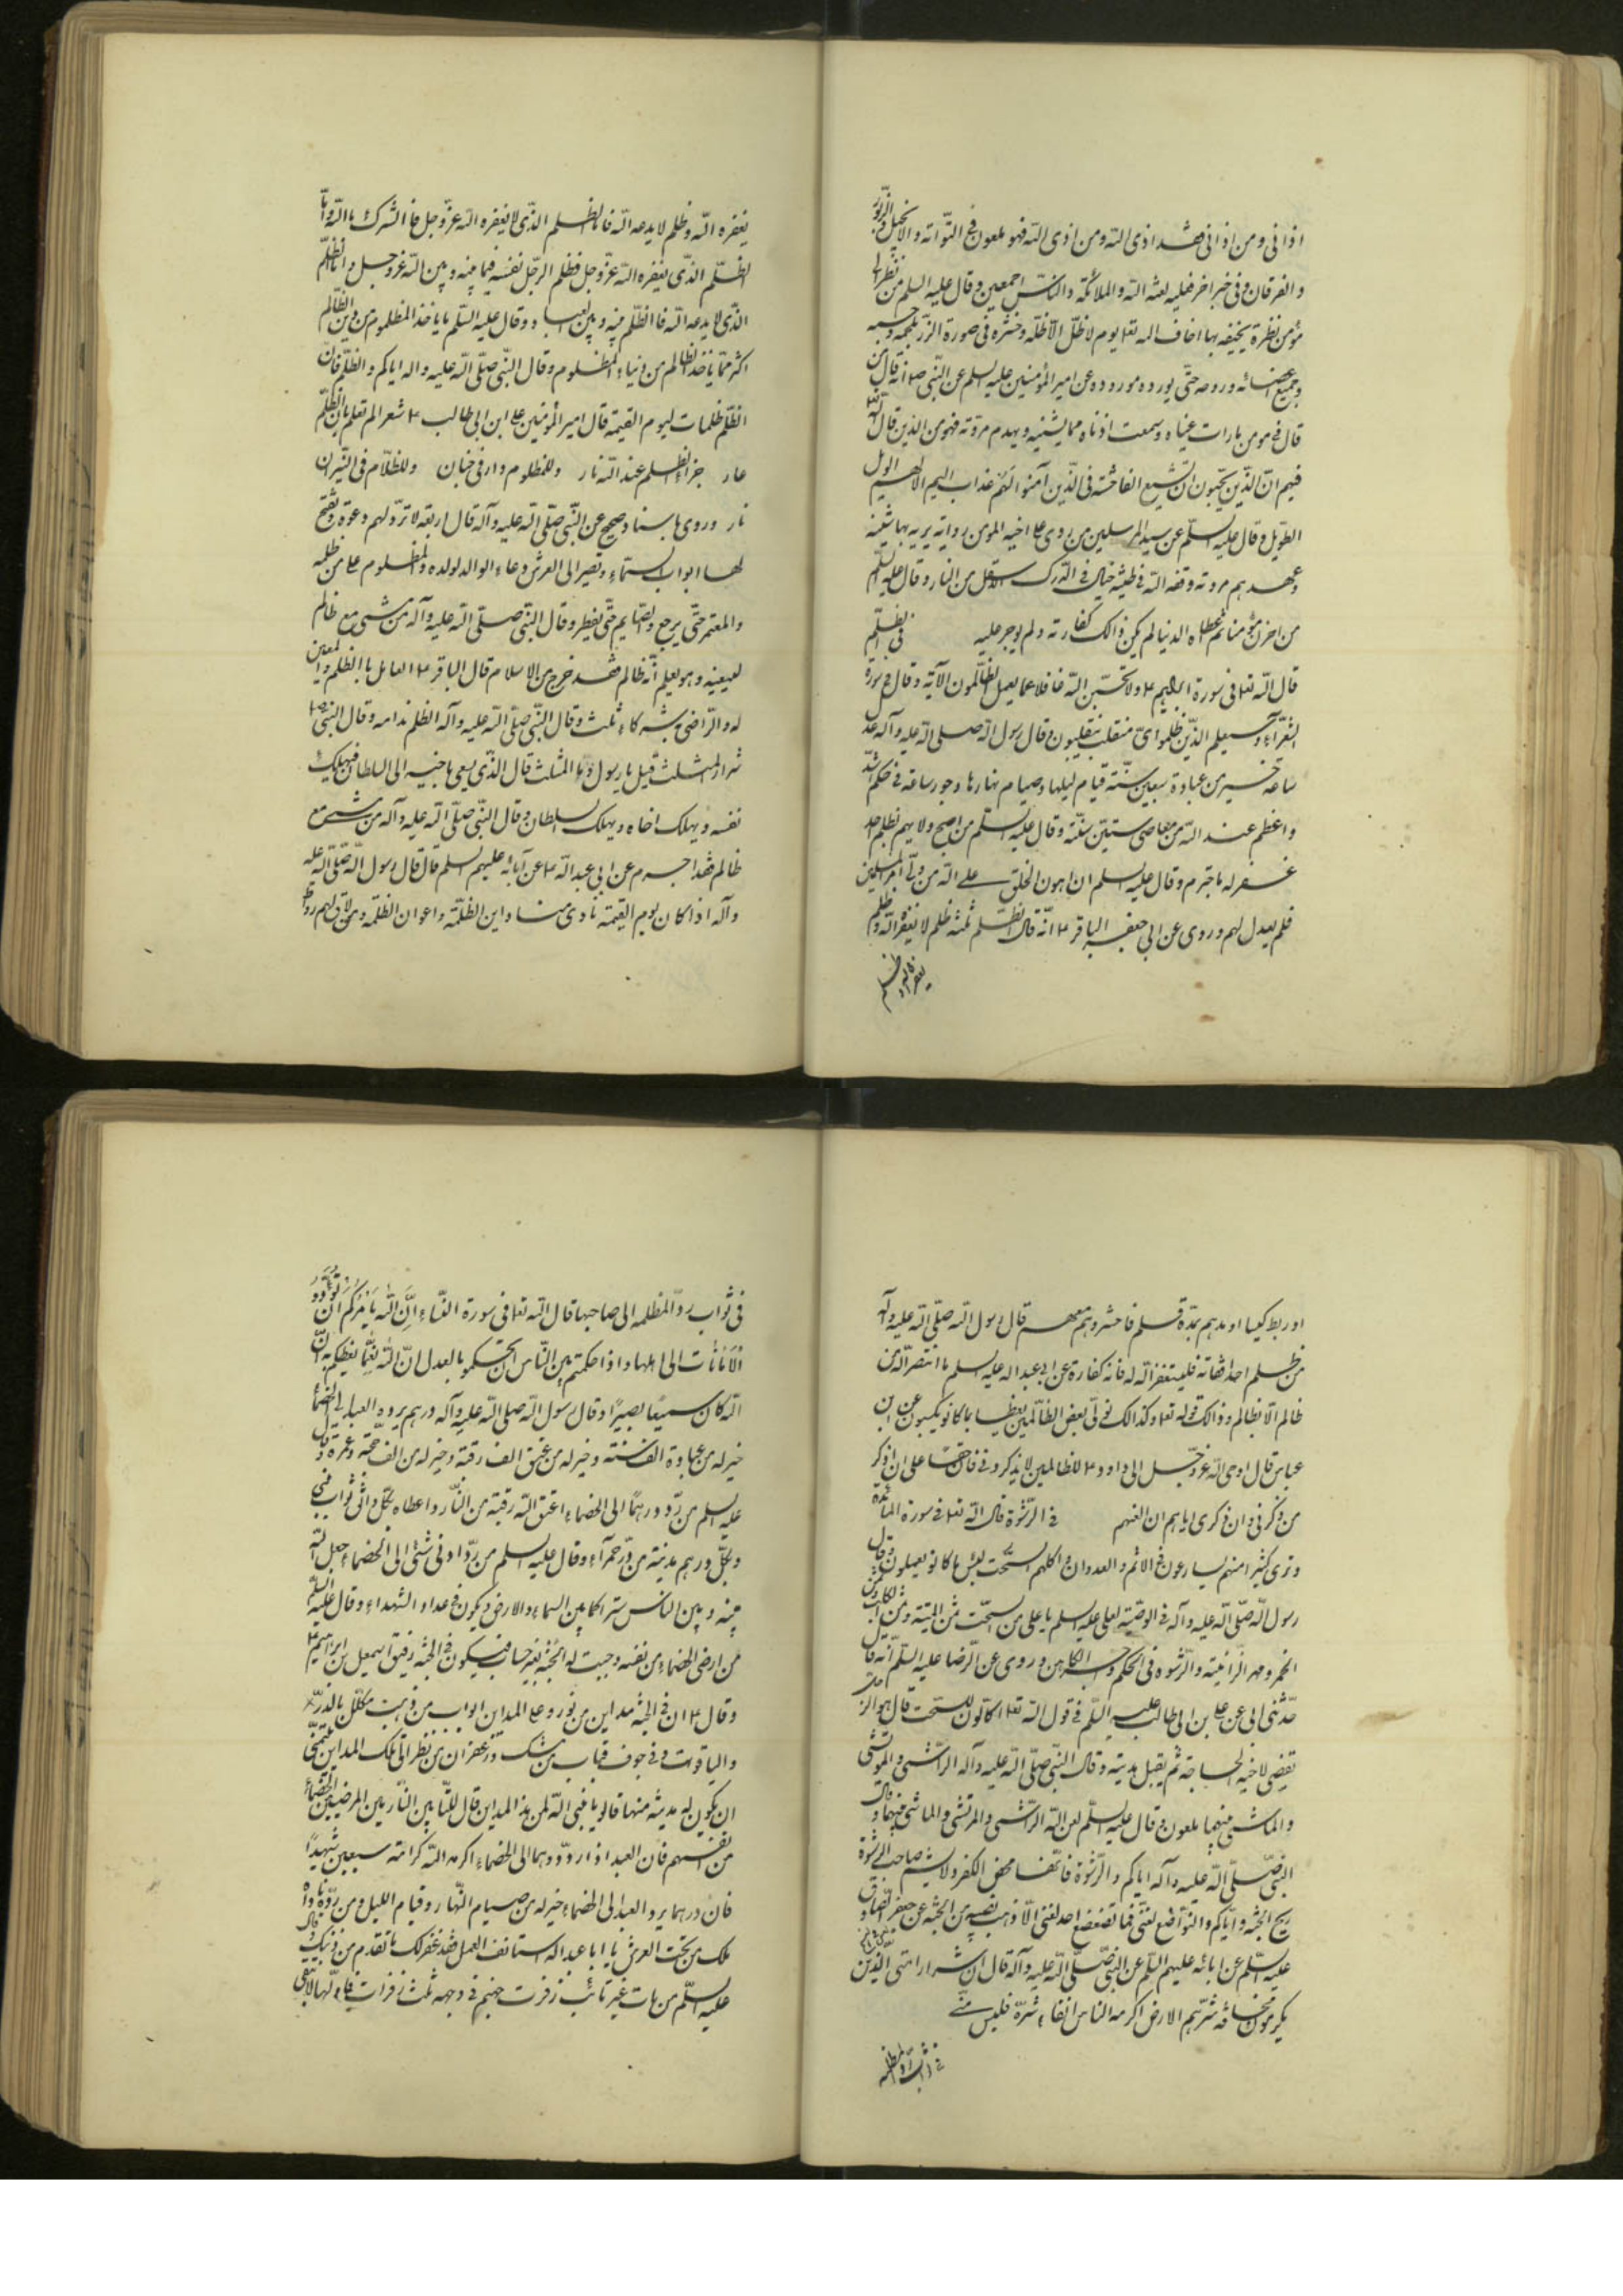 اذانی ومن اذانی فقد اذی الله ومن اذی الله فهو ملعون فی التوراته والانجیل والزبور
والفرقان وفی خبر اخر فعلیه لعنة الله والملائکة والناس اجمعین وقال علیه السلم من نظر الی
مؤمن نظرة یخیفه بها اخاف الله تعا یوم لا ظل الا ظله وحشره فی صورة الذر بلحمه وجسمه
وجمیع اعضائه وروحه حتی یورده مورده عن امیر المؤمنین علیه السلم عن النبی ص انه قال من
قال فی مومن ما رات عیناه وسمعت اذناه مما یشینه ویهدم مروته فهو من الذین قال الله
فیهم ان الذین یحبون ان تشیع الفاحشة فی الذین آمنوا لهم عذاب الیم الالهیم الویل
الطویل وقال علیه السلم عن سید المرسلین من روی علی اخیه المومن روایة یرید بها شینه
وهدم مروته وقفه الله فی طینة خبال فی الدرک الاسفل من النار وقال علیه السلم
من احزن مؤمنا ثم اعطاه الدنیا لم یکن ذالک کفارته ولم یوجر علیه فی الظلم
قال الله تعا فی سورة ابراهیم ع ولا تحسبن الله غافلا عما یعمل الظالمون الآیة وقال فی سورة
الشعراء وسیعلم الذین ظلموا ای منقلب ینقلبون وقال رسول الله صلی الله علیه وآله عدل
ساعة خیر من عبادة سبعین سنة قیام لیلها وصیام نهارها وجور ساعة فی حکم اشد
واعظم عند الله من معاصی ستین سنة وقال علیه السلم من اصبح ولا یهم بظلم احد
غفر له ما جترم وقال علیه السلم ان اهون الخلق علی الله من ولی امر المسلمین
فلم یعدل لهم وروی عن ابی جعفر الباقر ع انه قال الظلم ثلثة ظلم لا یغفره الله وظلم
یغفره الله وظلم
یغفره الله وظلم لا یدعه الله فاما الظلم الذی لا یغفره الله عز وجل فالشرک بالله واما
الظلم الذی یغفره الله عز وجل فظلم الرجل نفسه فیما بینه وبین الله عز وجل واما الظلم
الذی لا یدعه الله فالظلم بینه وبین العباد وقال علیه السلم ما یاخذ المظلوم من دین الظالم
اکثر مما یاخذ الظالم من دنیاء المظلوم وقال النبی صلی الله علیه واله ایاکم والظلم فان
الظلم ظلمات لیوم القیمة قال امیر المؤمنین علی ابن ابی طالب ع شعر الم تعلم بان الظلم
عار جزاء الظلم عند الله نار وللمظلوم دار فی جنان وللظلام فی النیران
نار وروی باسناد صحیح عن النبی صلی الله علیه وآله قال اربعة لا ترد لهم دعوة وتفتح
لها ابواب السماء وتصیر الی العرش دعاء الوالد لولده والمظلوم علی من ظلمه
والمعتمر حتی یرجع والصایم حتی یفطر وقال النبی صلی الله علیه وآله من مشی مع ظالم
لیعینه وهو یعلم انه ظالم فقد خرج من الاسلام قال الباقر ع العامل بالظلم والمعین
له والراضی به شرکاء ثلث وقال النبی صلی الله علیه وآله الظلم ندامه وقال النبی ص
شر الناس المثلث قیل یا رسول الله وما المثلث قال الذی یسعی باخیه الی السلطان فیهلک
نفسه ویهلک اخاه ویهلک السلطان وقال النبی صلی الله علیه وآله من مشی مع
ظالم فقد اجرم عن ابی عبدالله ع عن آبائه علیهم السلم قال قال رسول الله صلی الله علیه
وآله اذا کان یوم القیمة نادی مناد این الظلمة واعوان الظلمه ومن لاق لهم دواة
او ربط کیسا او مدهم بمدة قلم فاحشروهم معهم قال رسول الله صلی الله علیه وآله
من ظلم احدا ففاته فلیستغفر الله له فانه کفارة عن ابی عبدالله علیه السلم ما انتصر الله من
ظالم الا بظالم وذالک قوله تعا وکذالک نولی بعض الظالمین بعضا بما کانو یکسبون عن ابن
عباس قال اوحی الله عز وجل الی داود ع للظالمین لا یذکرونی فان حقا علی ان اذکر
من ذکرنی وان ذکری ایاهم ان العنهم فی الرشوة قال الله تعا فی سورة المائدة
وتری کثیرا منهم یسارعون فی الاثم والعدوان واکلهم السحت لبئس ما کانو یعملون وقال
رسول الله صلی الله علیه وآله فی الوصیة لعلی علیه السلم یا علی من السحت ثمن المیتة وثمن الکلب وثمن
الخمر ومهر الزانیة والرشوه فی الحکم واجر الکاهن وروی عن الرضا علیه السلم انه قال
حدثنی ابی عن علی بن ابی طالب علیه السلم فی قول الله تعا اکالون للسحت قال هو الرجل
یقضی لاخیه الحاجة ثم یقبل هدیته وقال النبی صلی الله علیه وآله الراشی والمرتشی
والماشی بینهما ملعون وقال علیه السلم لعن الله الراشی والمرتشی والماشی بینهما وقال
النبی صلی الله علیه وآله ایاکم والرشوة فانها محض الکفر ولا یشم صاحب الرشوة
ریح الجنة وایاکم والتواضع لغنی فما تضعضع احد لغنی الا ذهب نصیبه من الجنة عن جعفر الصادق
علیه السلم عن ابائه علیهم السلم عن النبی صلی الله علیه وآله قال ان شرار امتی الذین
یکرمون مخافة شرهم الا ومن اکرمه الناس اتقاء شره فلیس منی
فی ثواب رد المظلمه
فی ثواب رد المظلمه الی صاحبها قال الله تعا فی سورة النساء ان الله یأمرکم ان تؤدوا
الامانات الی اهلها واذا حکمتم بین الناس ان تحکمو بالعدل ان الله نعما یعظکم به ان
الله کان سمیعا بصیرا وقال رسول الله صلی الله علیه وآله درهم یرده العبد الی الخصماء
خیر له من عبادة الف سنة وخیر له من عتق الف رقبة وخیر له من الف حجة وعمرة وقال
علیه السلم من رد درهما الی الخصماء اعتق الله رقبته من النار واعطاه بکل دانق ثواب نبی
وبکل درهم مدینة من درة حمراء وقال علیه السلم من رد ادنی شئ الی الخصماء جعل الله
بینه وبین الناس سترا کما بین السماء والارض ویکون فی عداد الشهداء وقال علیه السلم
من ارضی الخصماء من نفسه وجبت له الجنة بغیر حساب فیکون فی الجنة رفیق اسمعیل بن ابراهیم ع
وقال ع ان فی الجنة مداین من نور وعلی المداین ابواب من ذهب مکلل بالدر
والیاقوت وفی جوف قباب من مسک وزعفران من نظر الی تلک المداین یتمنی
ان یکون له مدینة منها قالو یا نبی الله لمن هذه المداین قال للتائبین النادمین المرضیین الخصماء
من انفسهم فان العبد اذا رد درهما الی الخصماء اکرمه الله کرامة سبعین شهیدا
فان درهما یرده العبد الی الخصماء خیر له من صیام النهار وقیام اللیل ومن رده ناداه
ملک من تحت العرش یا ابا عبدالله استانف العمل فقد غفر لک ما تقدم من ذنبک وقال
علیه السلم من مات غیر تائب زفرت جهنم فی وجهه ثلث زفرات فاولها لا تبقی